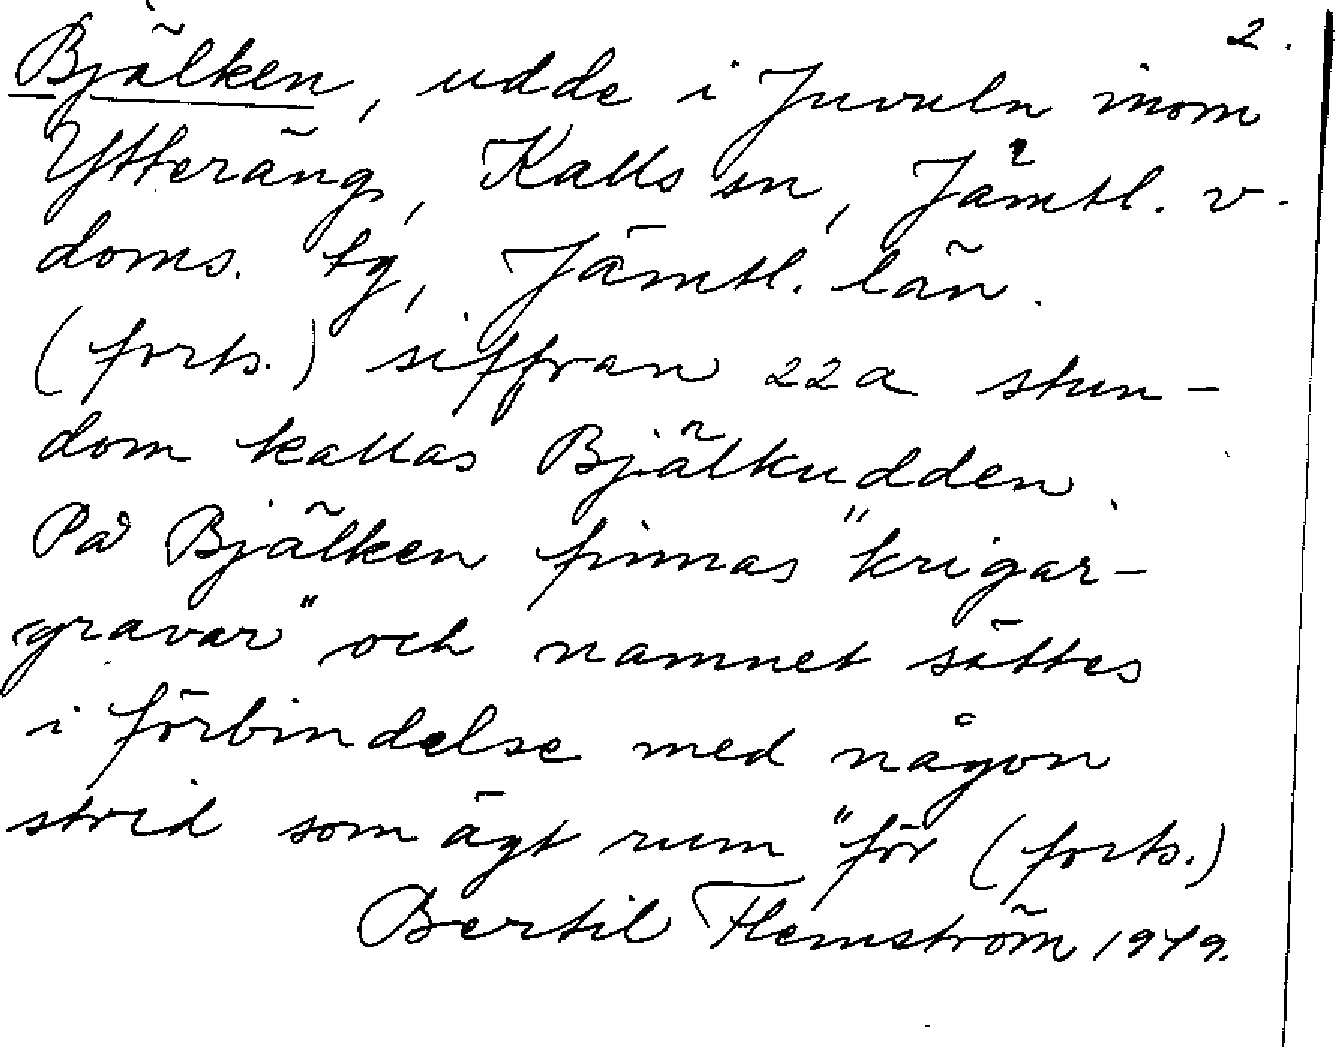 2.
Bjälken, udde i Juvuln inom
Ytteräng, Kalls sn, Jämtl. v.
doms. tg, Jämtl. län.
(forts.) siffran 22a stun-
dom kallas Bjälkudden.
På Bjälken finnas "krigar-
gravar" och namnet sättes
i förbindelse med någon
strid som ägt rum "för (forts.)
Bertil Flemström 1949.